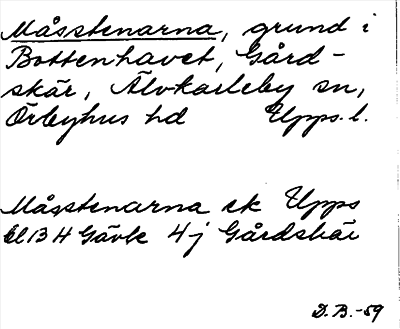 Måsstenarna, grund i
Bottenhavet, Gård-
skär, Älvkarleby sn,
Örbyhus hd Upps. l.
Måsstenarna ek Upps
bl 13 H Gävle 4j Gårdskär
D.B.-59